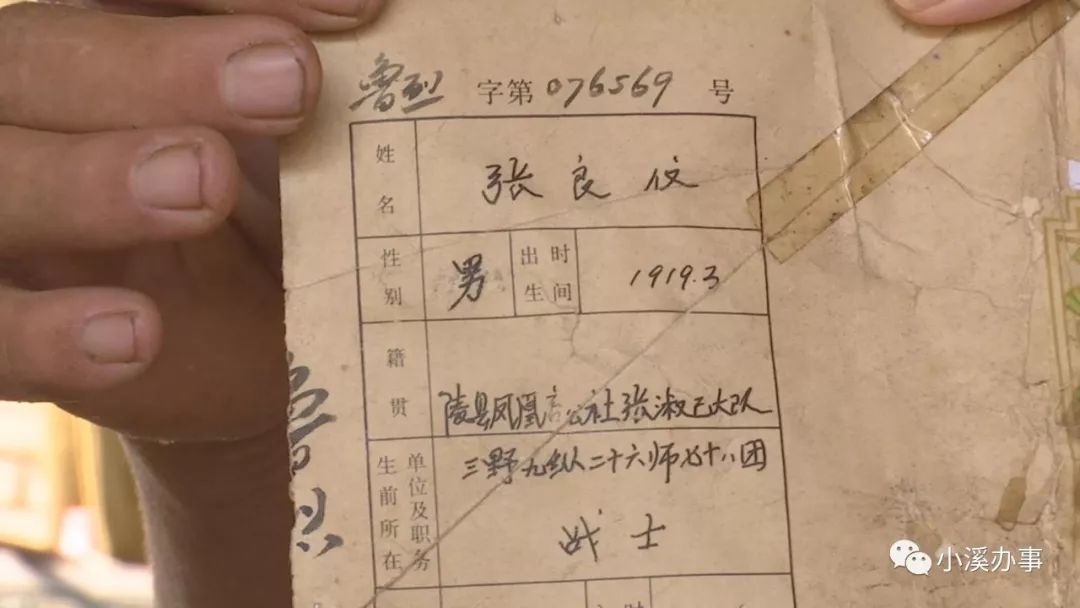 鲁烈 字第 076569 号
姓名 張良佼
性别 男 出生时间 1919.3
籍贯 陵县凤凰 公社张淑己大队
生前所在单位及职务 三野九纵二十六师七十八团
战士
小溪办事